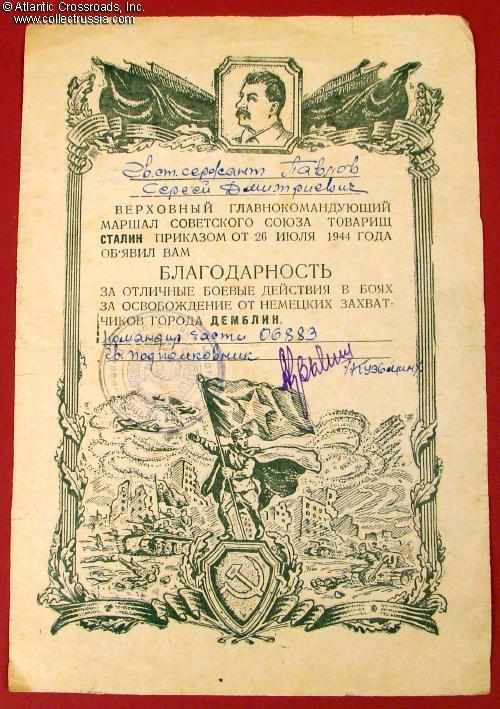 © Atlantic Crossroads, Inc.
www.collectrussia.com
Гв. ст. сержант Павлов
Сергей Дмитриевич
ВЕРХОВНЫЙ ГЛАВНОКОМАНДУЮЩИЙ
МАРШАЛ СОВЕТСКОГО СОЮЗА ТОВАРИЩ
СТАЛИН ПРИКАЗОМ ОТ 26 ИЮЛЯ 1944 ГОДА
ОБ'ЯВИЛ ВАМ
БЛАГОДАРНОСТЬ
ЗА ОТЛИЧНЫЕ БОЕВЫЕ ДЕЙСТВИЯ В БОЯХ
ЗА ОСВОБОЖДЕНИЕ ОТ НЕМЕЦКИХ ЗАХВАТ-
ЧИКОВ ГОРОДА ДЕМБЛИН.
Командир части 06883
гв. подполковник /Кузьмин/